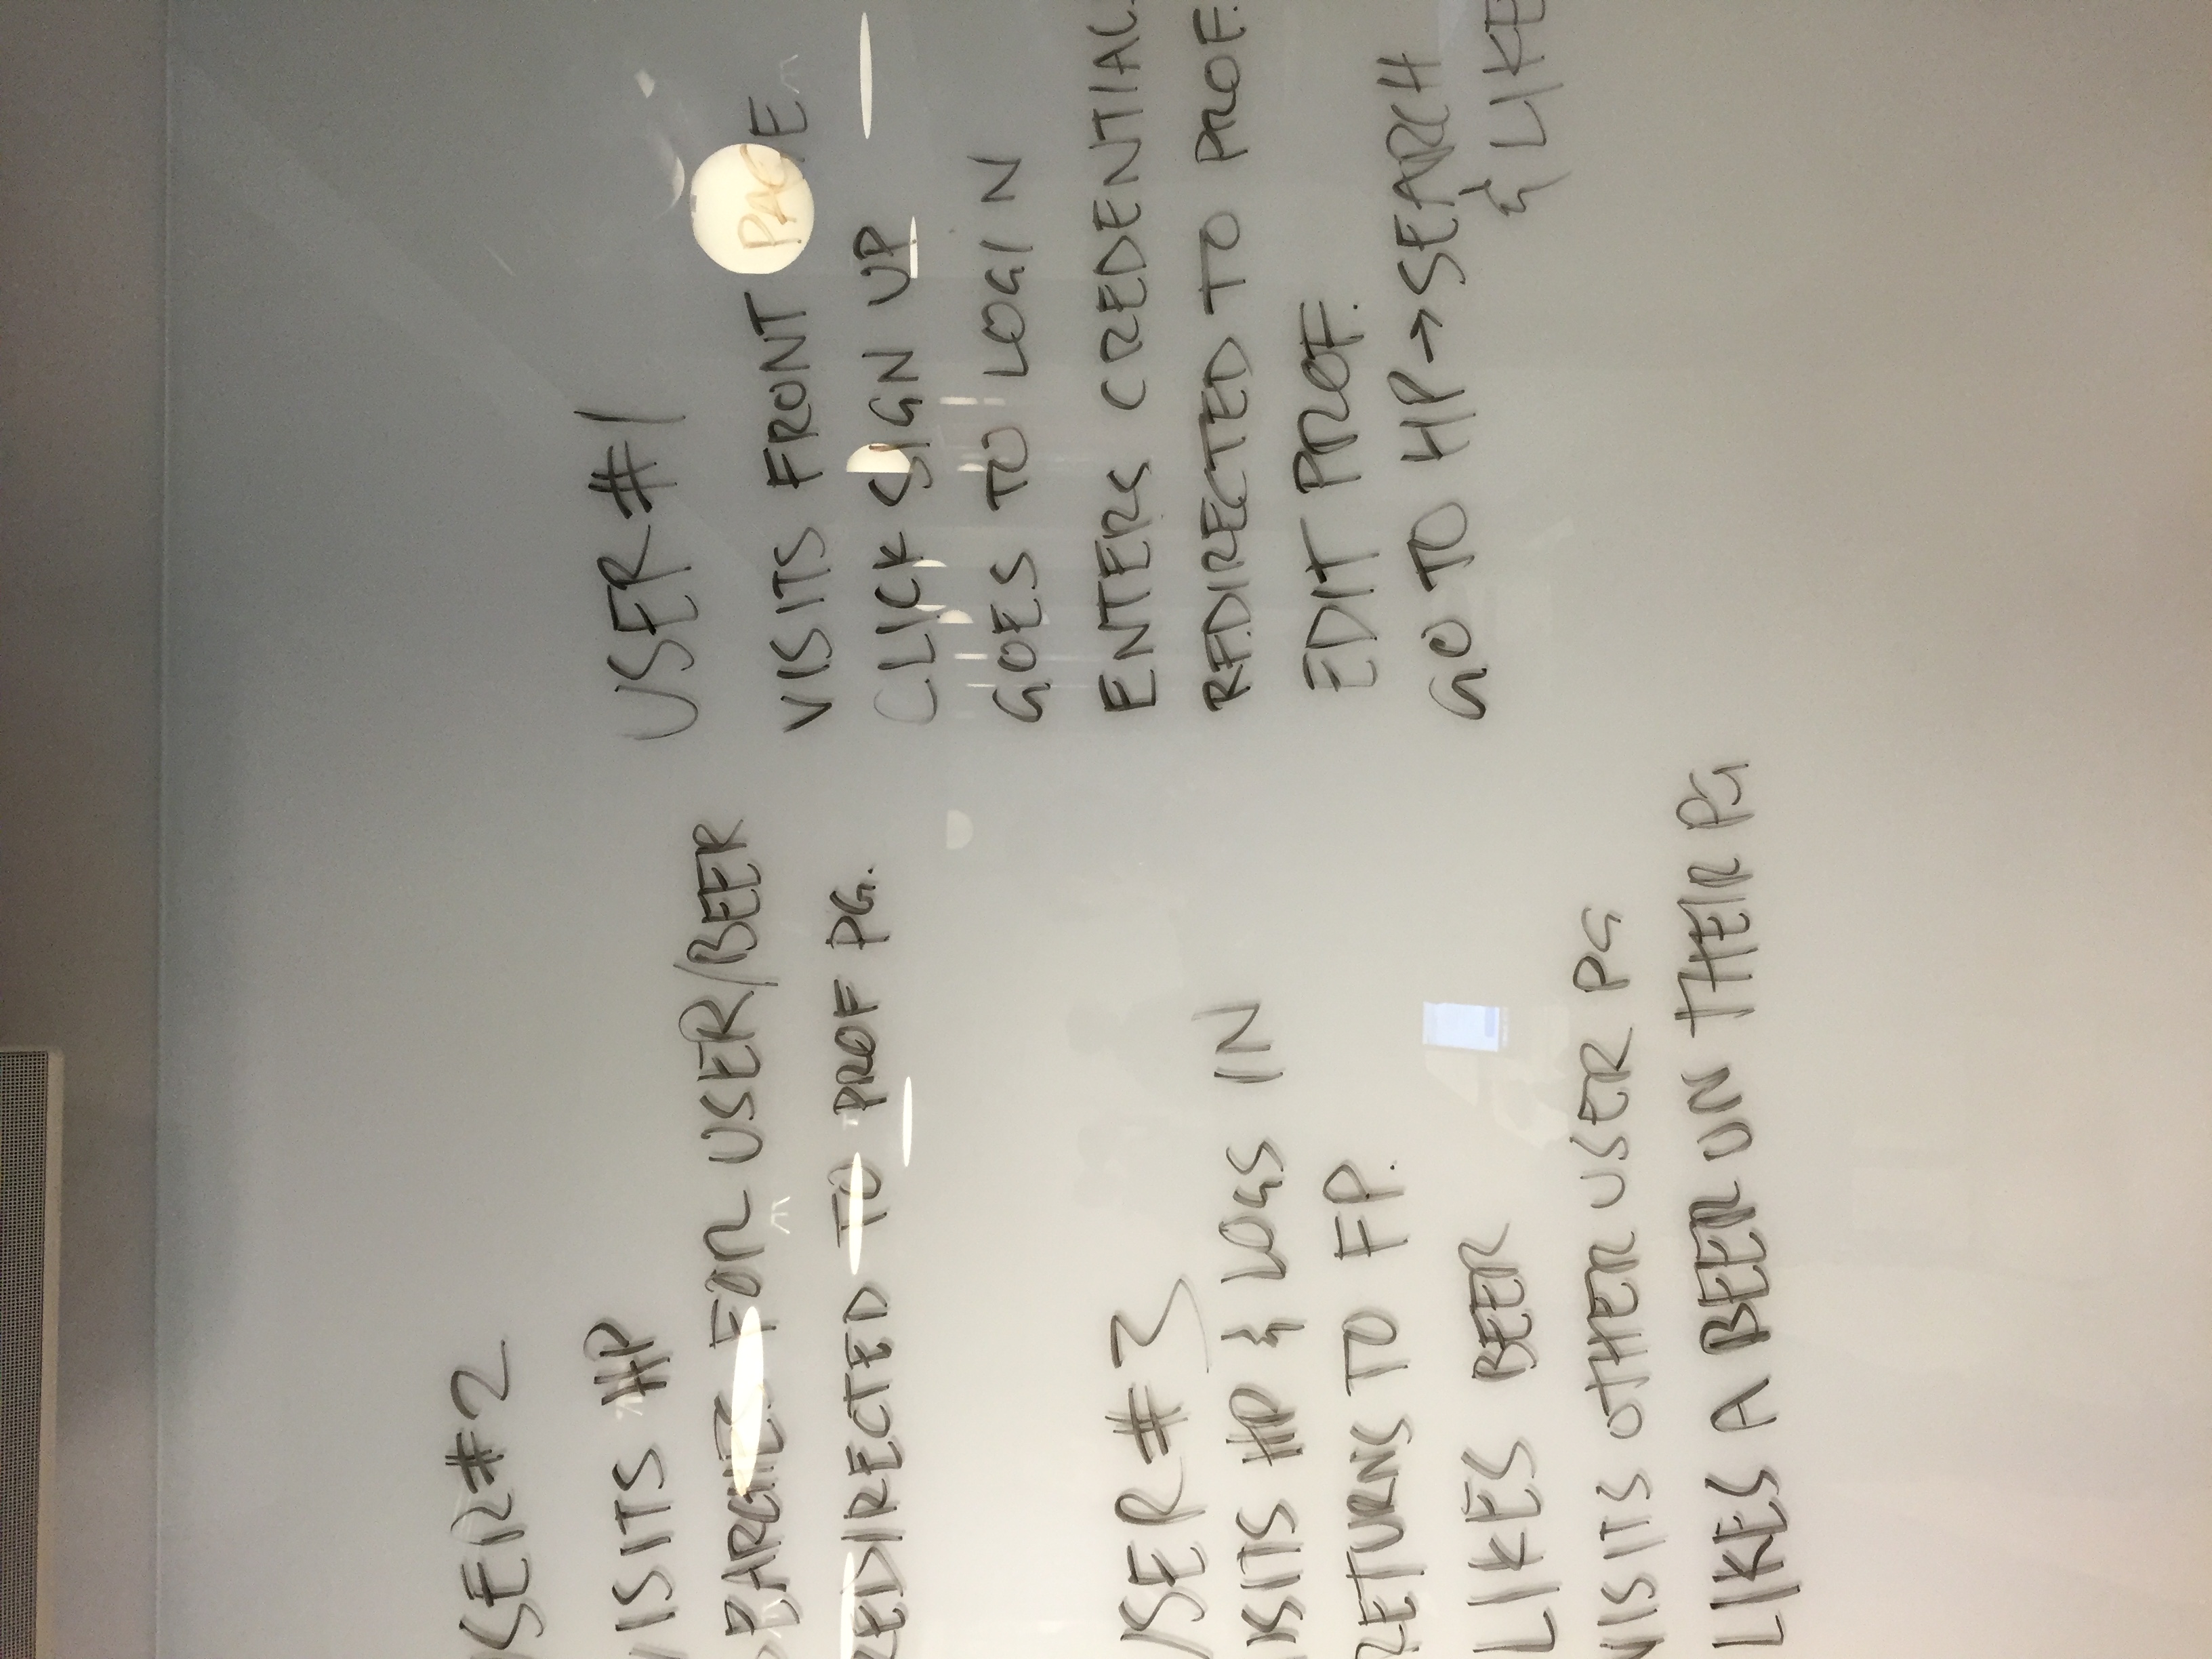 USER #2
VISITS HP
SEARCHES FOR USER/BEER
REDIRECTED TO PROF PG.
USER #3
VISITS HP & LOGS IN
RETURNS TO FP.
LIKES BEER
VISITS OTHER USER PG
LIKES A BEER ON THEIR PG
USER #1
VISITS FRONT PAGE
CLICK SIGN UP
GOES TO LOGIN
ENTERS CREDENTIAL
REDIRECTED TO PROF.
EDIT PROF.
GO TO HP → SEARCH
& LIKE